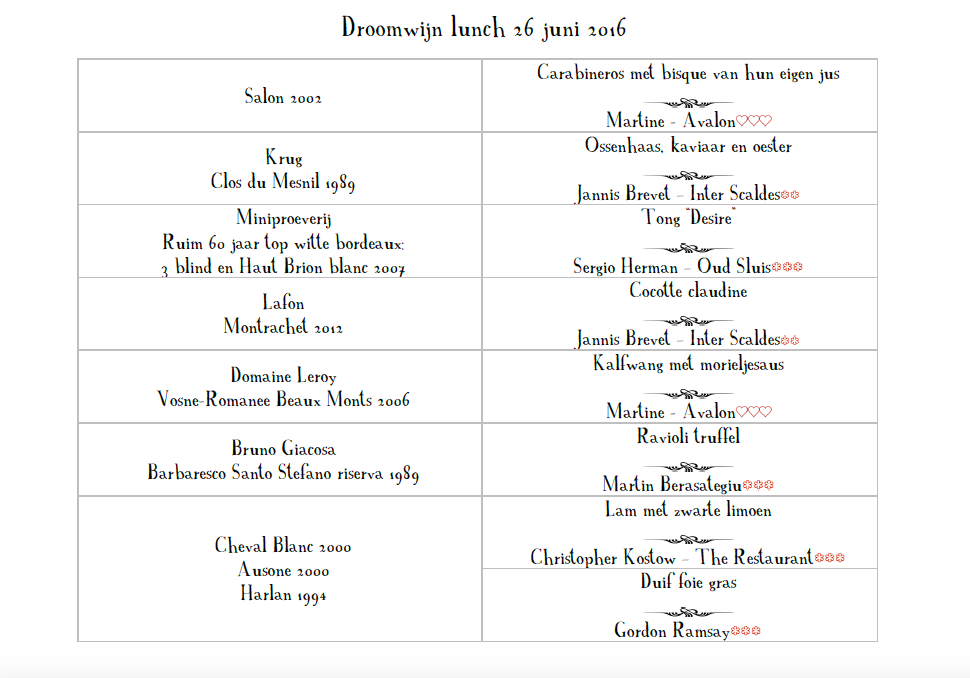 Droomwijn lunch 26 juni 2016
Salon 2002
Carabineros met bisque van hun eigen jus
Martine - Avalon♡♡♡
Krug
Clos du Mesnil 1989
Ossenhaas, kaviaar en oester
Jannis Brevet - Inter Scaldes❁❁
Miniproeverij
Ruim 60 jaar top witte bordeaux:
3 blind en Haut Brion blanc 2007
Tong "Desire"
Sergio Herman - Oud Sluis❁❁❁
Lafon
Montrachet 2012
Cocotte claudine
Jannis Brevet - Inter Scaldes❁❁
Domaine Leroy
Vosne-Romanee Beaux Monts 2006
Kalfwang met morieljesaus
Martine - Avalon♡♡♡
Bruno Giacosa
Barbaresco Santo Stefano riserva 1989
Ravioli truffel
Martin Berasategiu❁❁❁
Cheval Blanc 2000
Ausone 2000
Harlan 1994
Lam met zwarte limoen
Christopher Kostow - The Restaurant❁❁❁
Duif foie gras
Gordon Ramsay❁❁❁